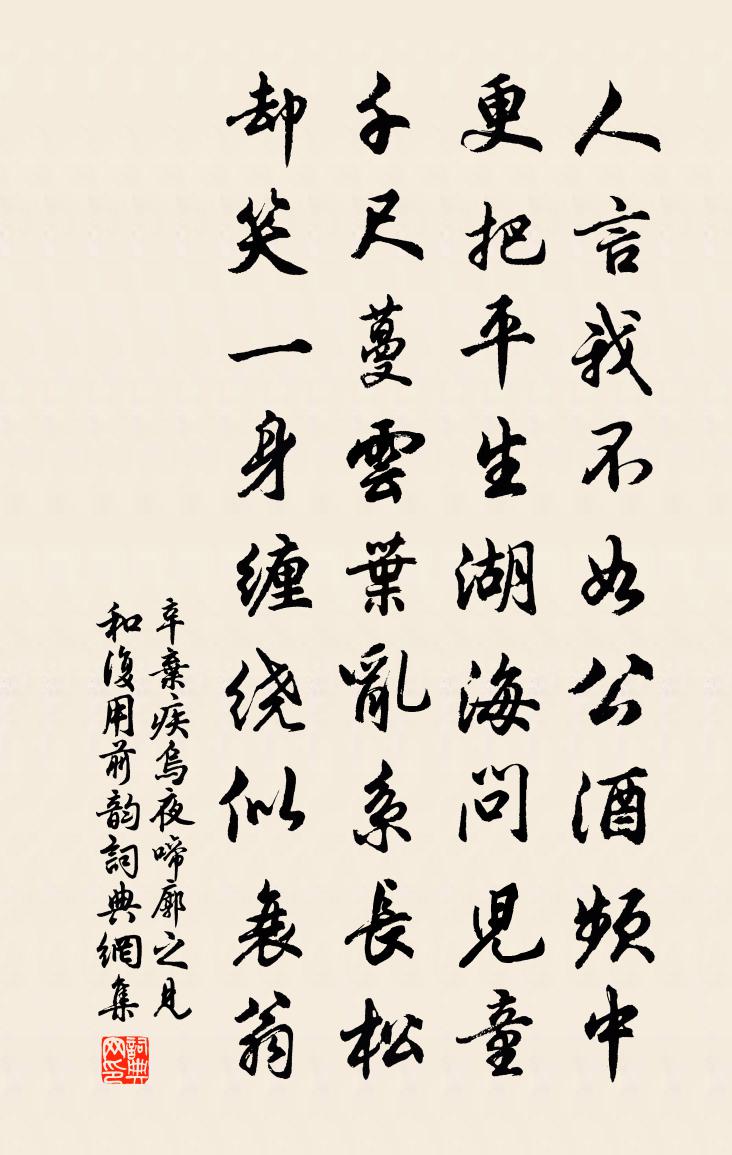 人言我不如公酒頻中
更把平生湖海問兒童
千尺蔓雲葉亂系長松
却笑一身纏绕似衰翁
辛棄疾烏夜啼廓之見
和復用前韵詞典網集
詞典网印